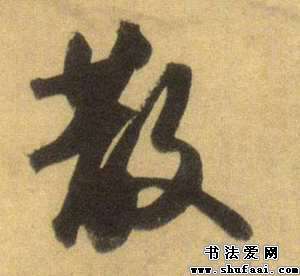 散
书法爱网
www.shufaai.com